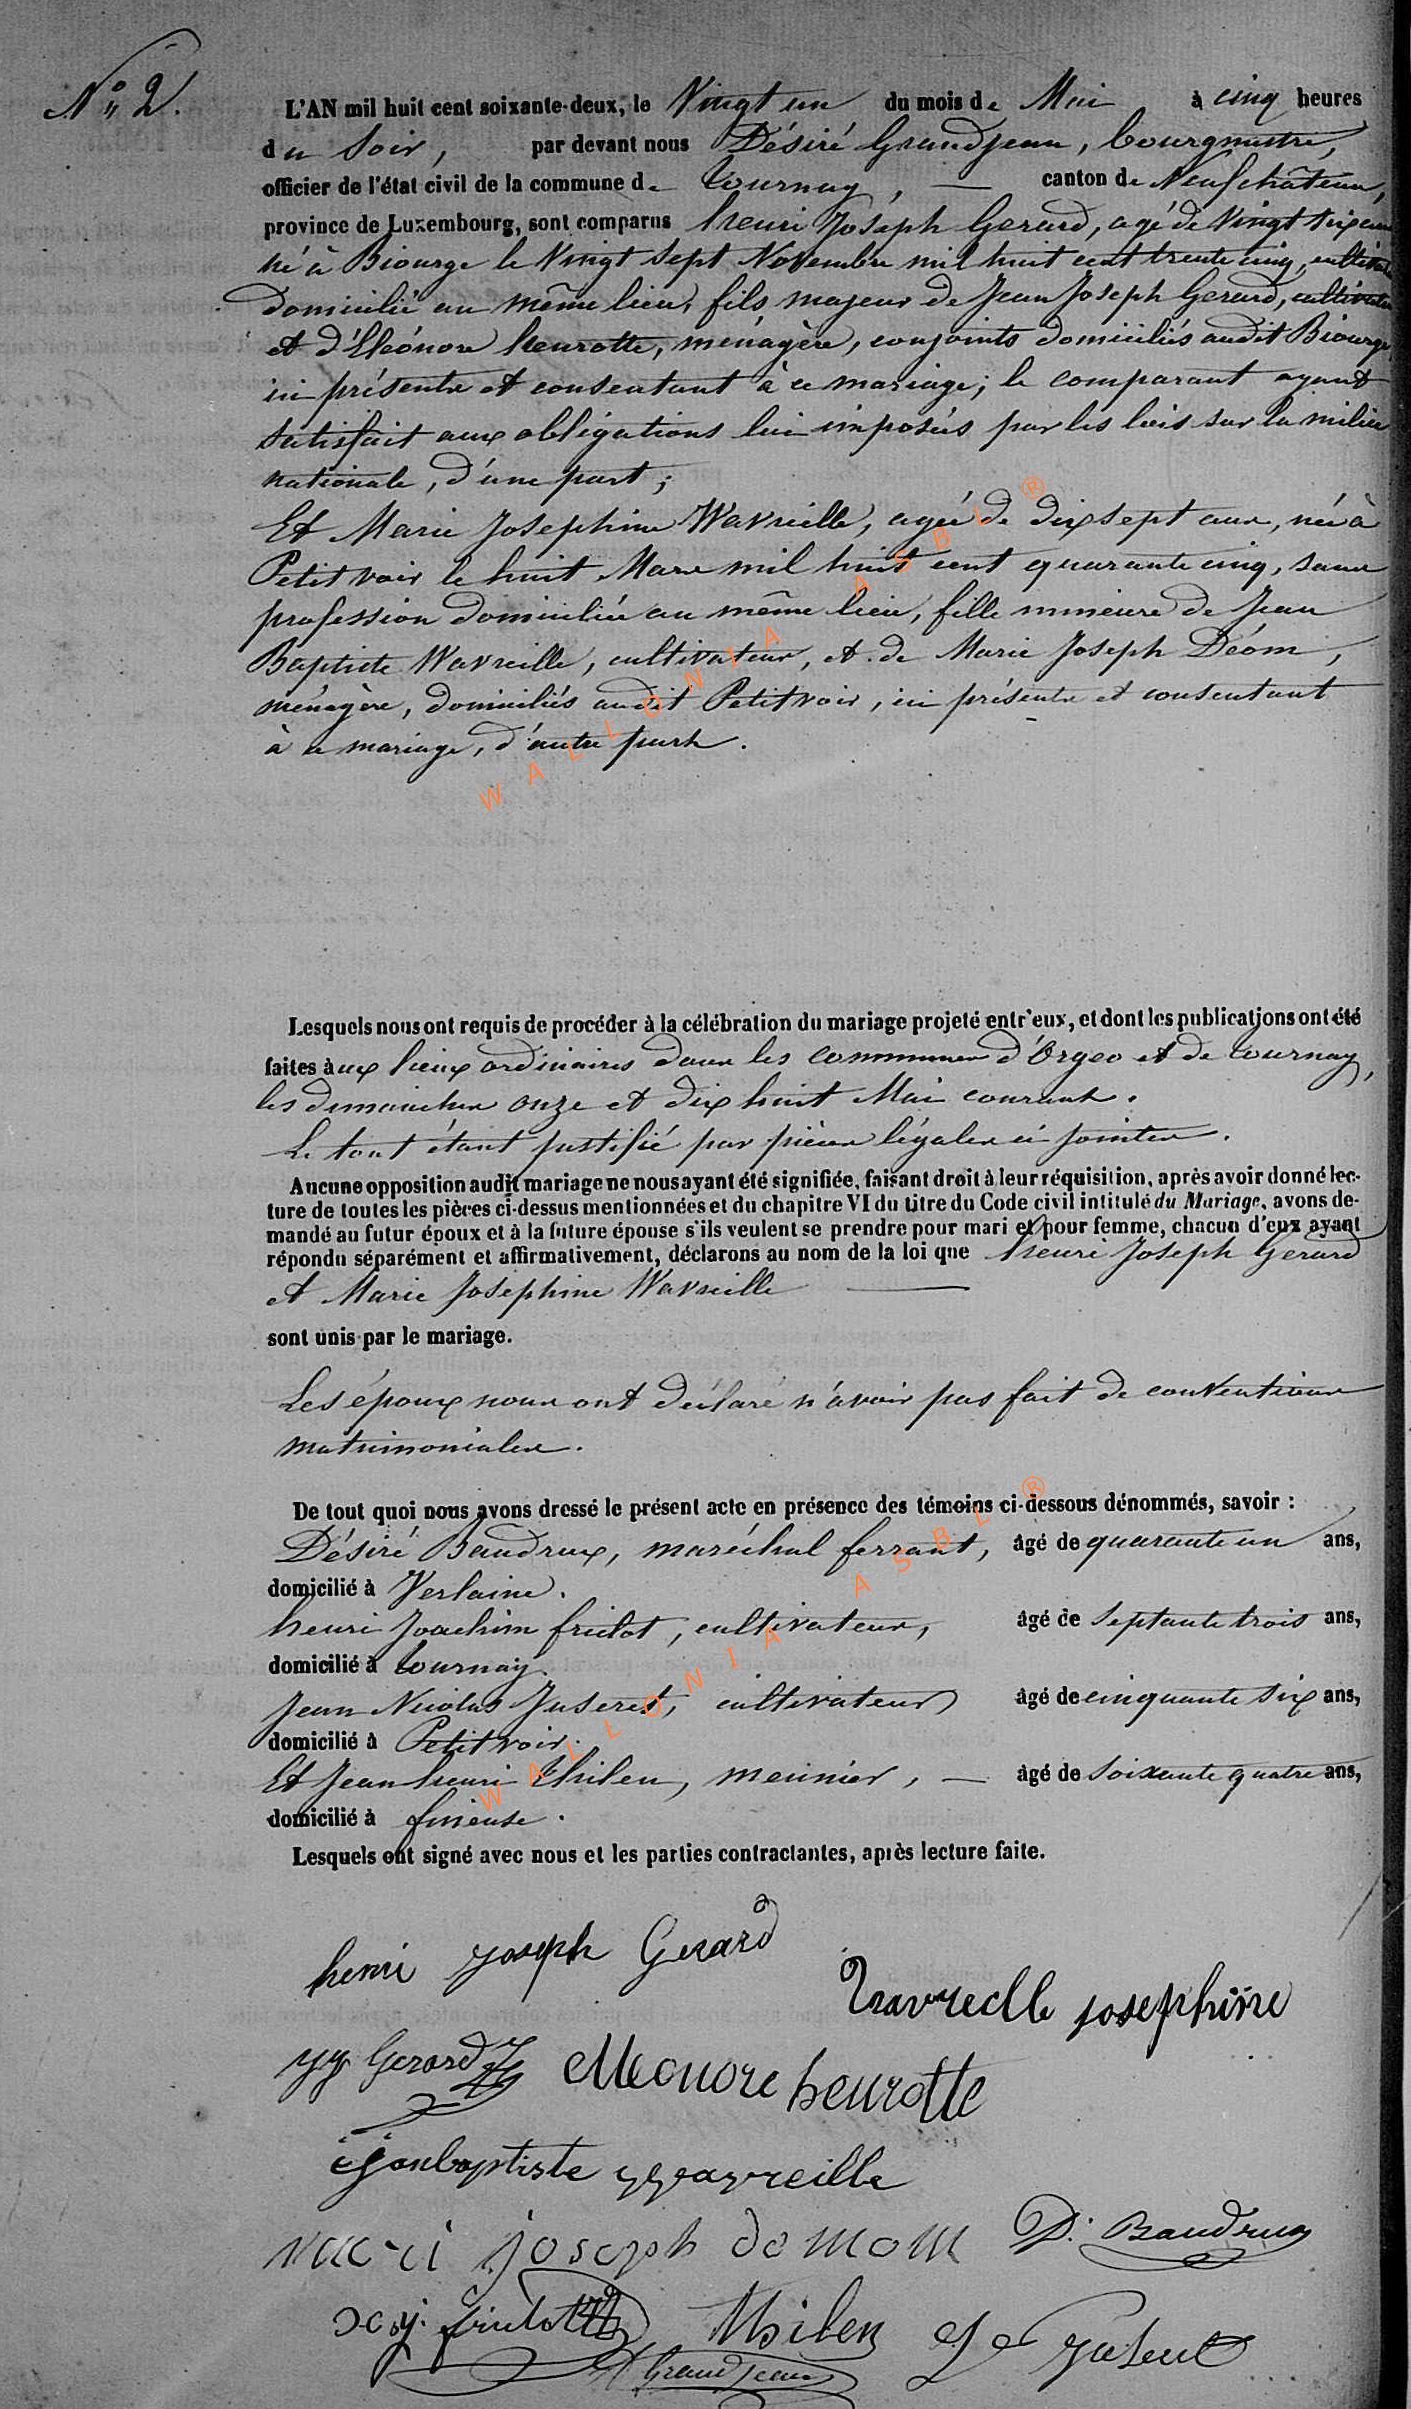 N° 2.
L'AN mil huit cent soixante-deux, le Vingt un du mois de Mai à cinq heures
du Soir, par devant nous Désiré Grandjean, bourgmestre,
officier de l'état civil de la commune de Tournay, — canton de Neufchâteau,
province de Luxembourg, sont comparus henri Joseph Gerard, agé de Vingt six ans
né à Biourge le Vingt sept Novembre mil huit cent trente cinq, cultivateur
domicilié au même lieu, fils majeur de Jean Joseph Gerard, cultivateur
et d'Eléonore heurotte, ménagère, conjoints domiciliés audit Biourge
ici présents et consentant à ce mariage; le comparant ayant
satisfait aux obligations lui imposées par les lois sur la milice
nationale, d'une part;
Et Marie Josephine Wavreille, agée de dix sept ans, née à
Petitvoir le huit Mars mil huit cent quarante cinq, sans
profession domiciliée au même lieu, fille mineure de Jean
Baptiste Wavreille, cultivateur, et de Marie Joseph Déom,
ménagère, domiciliés audit Petitvoir, ici présents et consentant
à ce mariage, d'autre part.
WALLONIA ASBL ®
Lesquels nous ont requis de procéder à la célébration du mariage projeté entr'eux, et dont les publications ont été
faites aux lieux ordinaires dans les communes d'Orgeo et de Tournay,
les dimanches onze et dix huit Mai courant.
Le tout étant justifié par pièces légales ci jointes.
Aucune opposition audit mariage ne nous ayant été signifiée, faisant droit à leur réquisition, après avoir donné lec-
ture de toutes les pièces ci-dessus mentionnées et du chapitre VI du titre du Code civil intitulé du Mariage, avons de-
mandé au futur époux et à la future épouse s'ils veulent se prendre pour mari et pour femme, chacun d'eux ayant
répondu séparément et affirmativement, déclarons au nom de la loi que henri Joseph Gerard
et Marie Josephine Wavreille —
sont unis par le mariage.
Les époux nous ont déclaré n'avoir pas fait de conventions
matrimoniales.
De tout quoi nous avons dressé le présent acte en présence des témoins ci-dessous dénommés, savoir :
Désiré Baudrux, maréchal ferrant, âgé de quarante un ans,
domicilié à Verlaine.
henri Joachim friclot, cultivateur, âgé de septante trois ans,
domicilié à tournay.
Jean Nicolas Juseret, cultivateur, âgé de cinquante six ans,
domicilié à Petitvoir.
Et Jean henri Thilen, meunier, — âgé de Soixante quatre ans,
domicilié à fineuse.
WALLONIA ASBL ®
Lesquels ont signé avec nous et les parties contractantes, après lecture faite.
henri joseph Gerard
Wavreille josephine
JJ Gerard
elleonore heurotte
jeanbaptiste Wavreille
joseph
D. Baudrux
Thilen
Grandjean